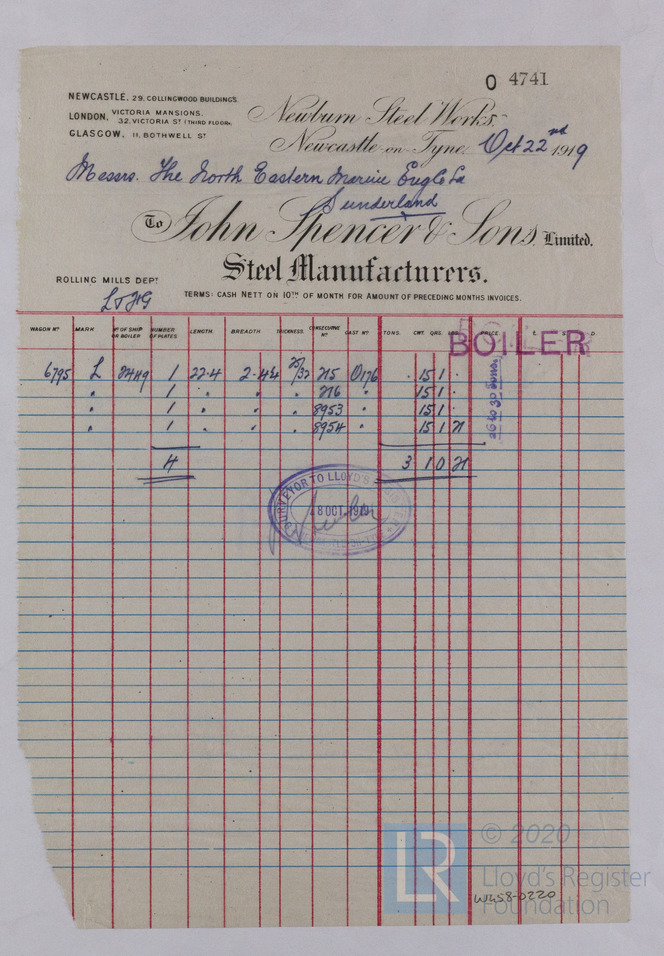 O 4741
NEWCASTLE, 29, COLLINGWOOD BUILDINGS
LONDON, VICTORIA MANSIONS, 32, VICTORIA ST (THIRD FLOOR),
GLASGOW, 11, BOTHWELL ST
Newburn Steel Works
Newcastle-on-Tyne, Oct 22nd 1919
Messrs. The North Eastern Marine Engg Co Ld
Sunderland
To John Spencer & Sons, Limited,
Steel Manufacturers.
ROLLING MILLS DEPT
TERMS: CASH NETT ON 10TH OF MONTH FOR AMOUNT OF PRECEDING MONTHS INVOICES.
WAGON NO MARK NO OF SHIP OR BOILER NUMBER OF PLATES LENGTH. BREADTH. THICKNESS. CONSECUTIVE NO CAST NO TONS. CWT. QRS. LBS. PRICE £ S. D.
BOILER
26 to 30 tons.
6795 L 2449 1 22-4 2-4¾ 25/32 215 O176 15 1
" 1 " " " 216 " 15 1
" 1 " " " 8953 " 15 1
" 1 " " " 8954 " 15 1 21
4 3 1 0 21
SURVEYOR TO LLOYD'S REGISTER
28 OCT. 1919
LR
© 2020
Lloyd's Register
Foundation
W458-0220